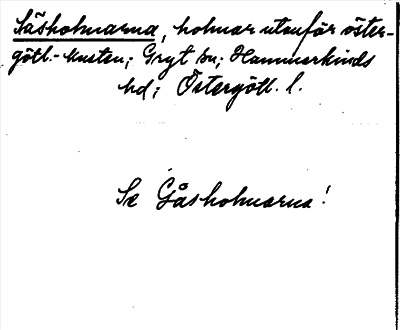 Såsholmarna, holmar utanför öster-
götl.-kusten; Gryt sn; Hammarkinds
hd; Östergötl. l.
Se Gåsholmarna!